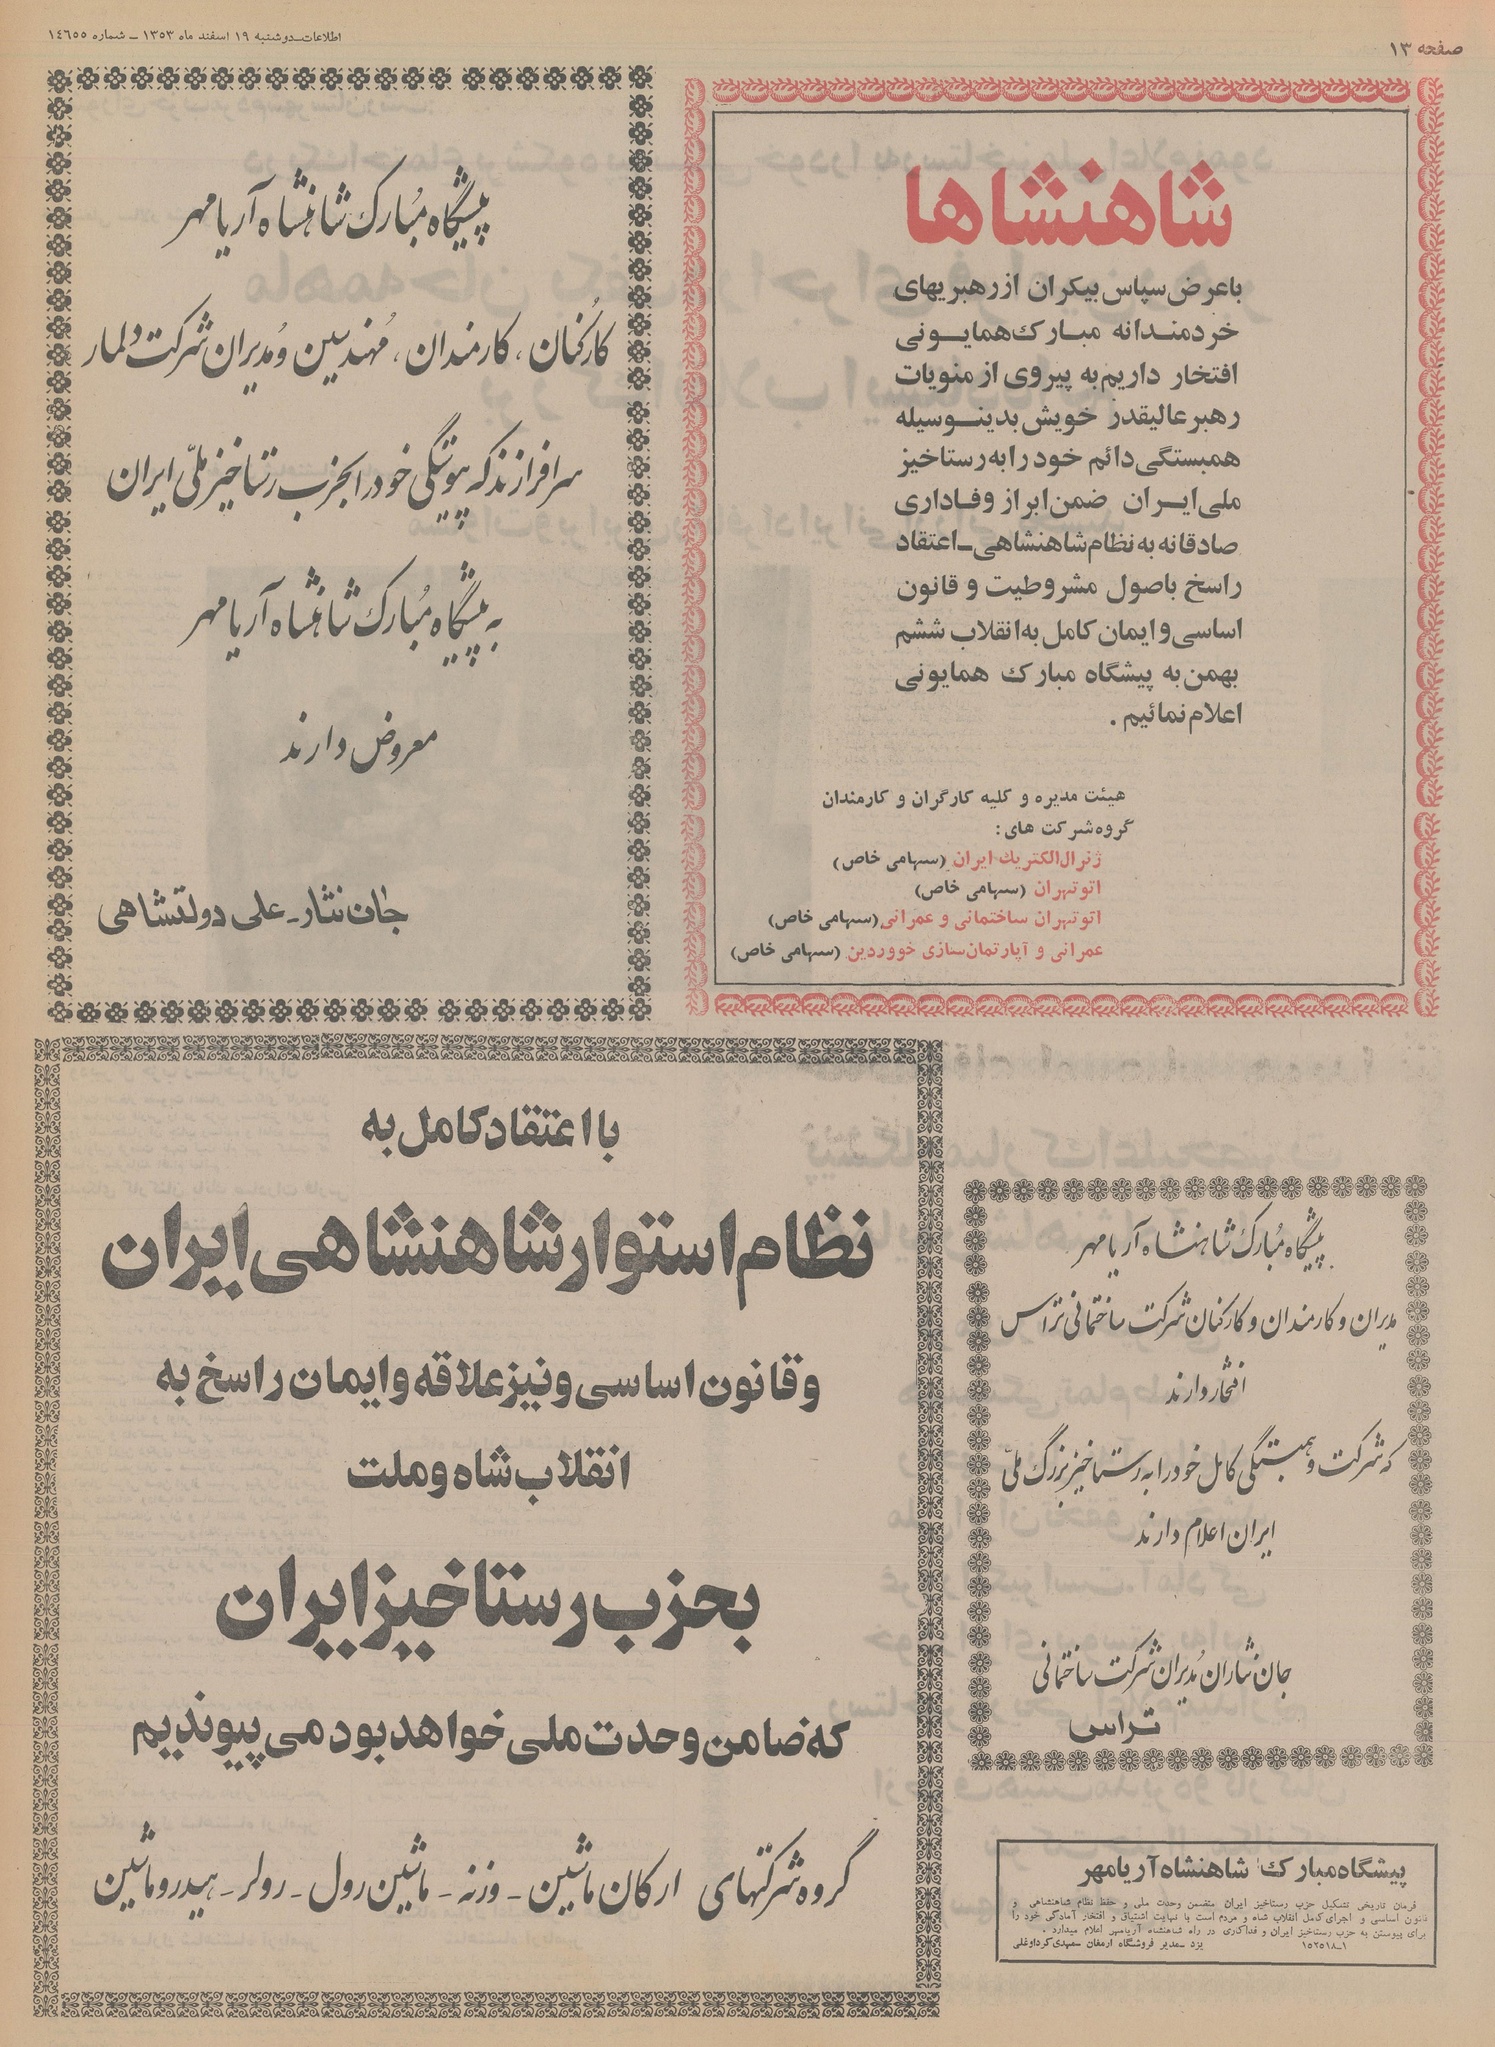 صفحه ۱۳
اطلاعات ـ دوشنبه ۱۹ اسفند ماه ۱۳۵۳ ـ شماره ۱۴۶۵۵
شاهنشاها
با عرض سپاس بیکران از رهبریهای
خردمندانه مبارک همایونی
افتخار داریم به پیروی از منویات
رهبر عالیقدر خویش بدینوسیله
همبستگی دائم خود را به رستاخیز
ملی ایران ضمن ابراز وفاداری
صادقانه به نظام شاهنشاهی ـ اعتقاد
راسخ باصول مشروطیت و قانون
اساسی و ایمان کامل به انقلاب ششم
بهمن به پیشگاه مبارک همایونی
اعلام نمائیم .
هیئت مدیره و کلیه کارگران و کارمندان
گروه شرکت های :
ژنرال الکتریک ایران (سهامی خاص)
اتو تهران (سهامی خاص)
اتو تهران ساختمانی و عمرانی (سهامی خاص)
عمرانی و آپارتمان سازی خووردین (سهامی خاص)
پیشگاه مبارک شاهنشاه آریامهر
کارکنان ، کارمندان ، مهندسین و مدیران شرکت دلمار
سرافرازند که پیوستگی خود را بحزب رستاخیز ملی ایران
به پیشگاه مبارک شاهنشاه آریامهر
معروض دارند
جان نثار ـ علی دولتشاهی
با اعتقاد کامل به
نظام استوار شاهنشاهی ایران
و قانون اساسی و نیز علاقه و ایمان راسخ به
انقلاب شاه و ملت
بحزب رستاخیز ایران
که ضامن وحدت ملی خواهد بود می پیوندیم
گروه شرکتهای ارکان ماشین ـ وزنه ـ ماشین رول ـ رولر ـ هیدروماشین
پیشگاه مبارک شاهنشاه آریامهر
مدیران و کارمندان و کارکنان شرکت ساختمانی تراس
افتخار دارند
که شرکت و همبستگی کامل خود را به رستاخیز بزرگ ملی
ایران اعلام دارند
جان نثاران مدیران شرکت ساختمانی
تراس
پیشگاه مبارک شاهنشاه آریامهر
فرمان تاریخی تشکیل حزب رستاخیز ایران متضمن وحدت ملی و حفظ نظام شاهنشاهی و
قانون اساسی و اجرای کامل انقلاب شاه و مردم است با نهایت اشتیاق و افتخار آمادگی خود را
برای پیوستن به حزب رستاخیز ایران و فداکاری در راه شاهنشاه آریامهر اعلام میدارد .
۱ـ۱۵۲۵۱۸ یزد ـ مدیر فروشگاه ارمغان